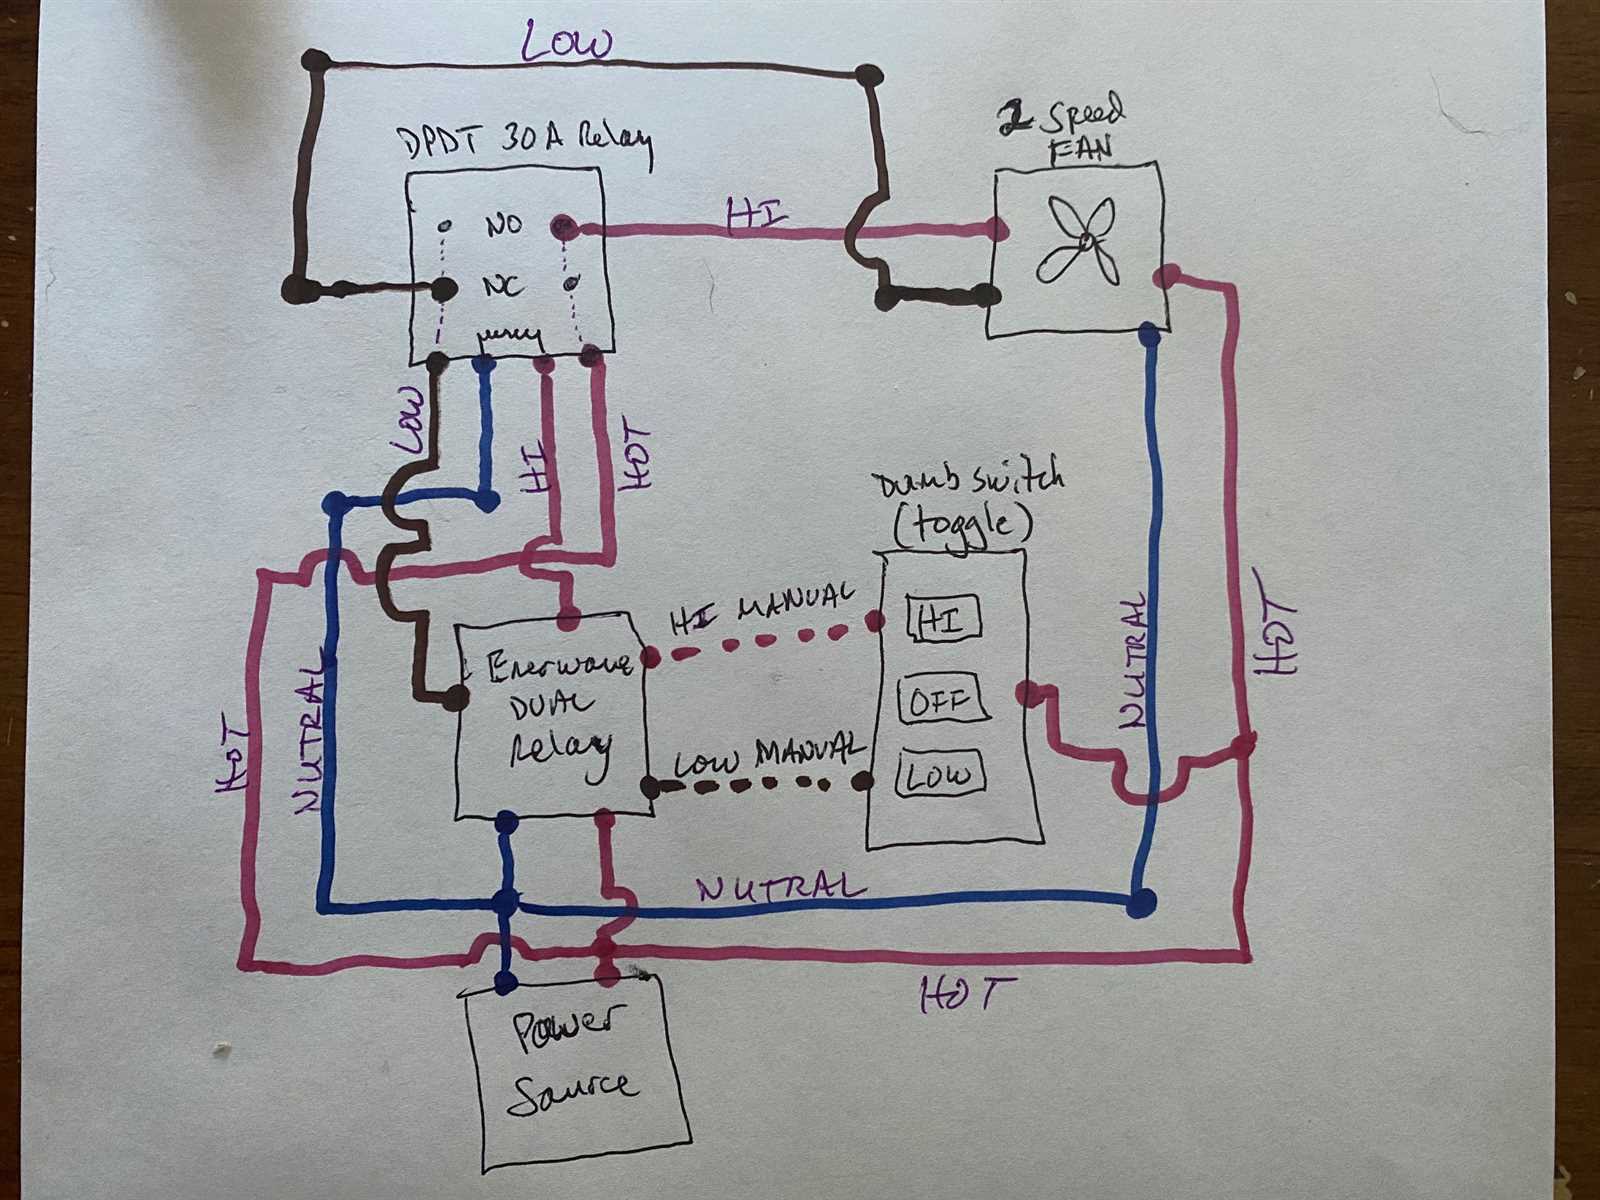 LOW
DPDT 30A Relay
2 Speed
FAN
NO
HI
NC
LOW
HI
HOT
Dumb switch
(toggle)
HI MANUAL
HI
Enerwave
DUAL
Relay
OFF
LOW MANUAL
LOW
NUTRAL
HOT
NUTRAL
HOT
NUTRAL
HOT
Power
Source